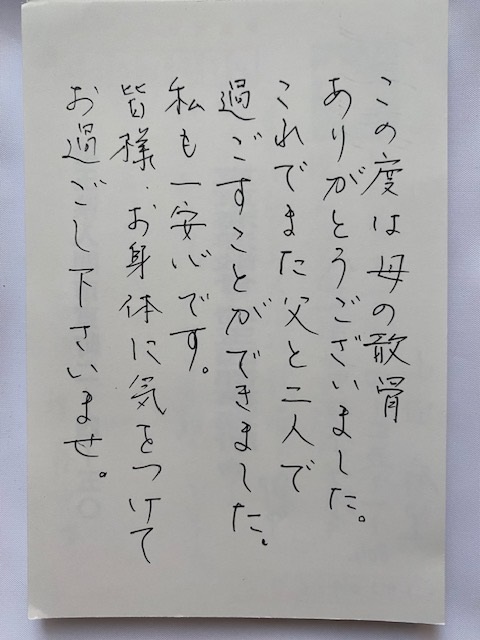 この度は母の散骨
ありがとうございました。
これでまた父と二人で
過ごすことができました。
私も一安心です。
皆様、お身体に気をつけて
お過ごし下さいませ。